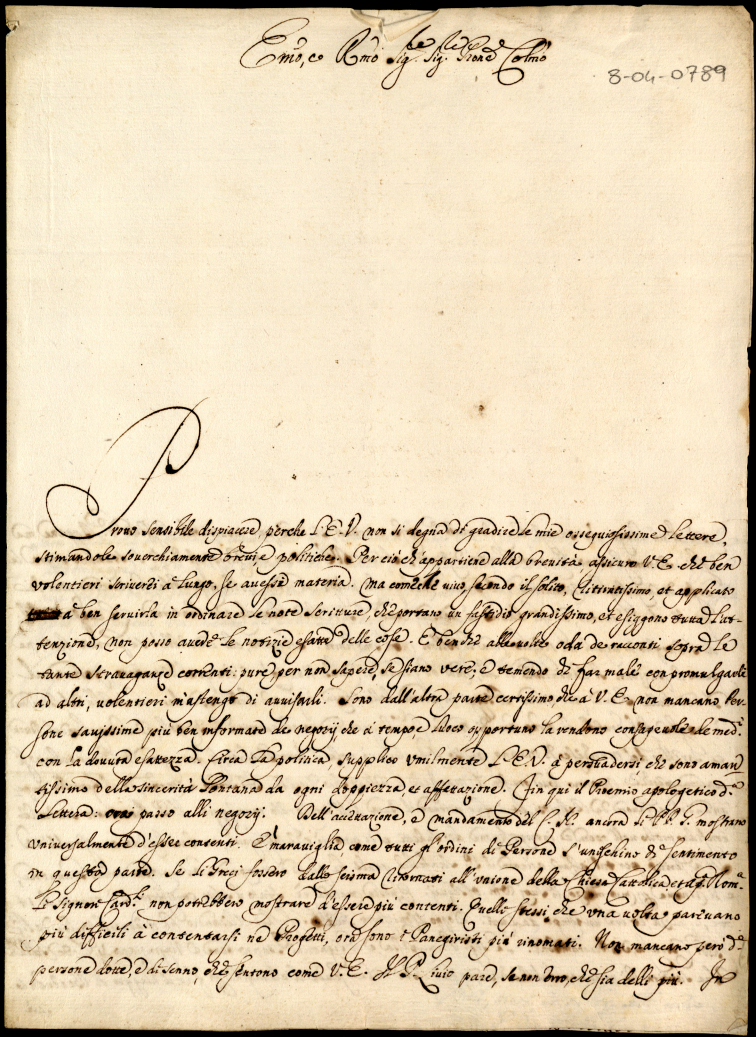 Emo, e Rmo Sig.re Sig.re Prone Colmo
8-04-0789
Provo sensibile dispiacere, perche l'E.V. non si degna di gradire le mie ossequiosissime lettere,
stimandole soverchiamente brevi e politiche. Per ciò ch'appartiene alla brevità, assicuro V.E. che ben
volentieri scriverei à lungo, se avesse materia. Ma vivo, secondo il solito, ritiratissimo, et applicato
à ben servirla in ordinare le note scritture, che portano un fastidio grandissimo, et esiggono tutta l'at-
tenzione, non posso avere le notizie esatte delle cose. E benche alle volte oda de racconti sopra le
tante stravaganze correnti: pure per non sapere, se siano vere, e temendo di far male con promulgarle
ad altri, volentieri m'astengo di avvisarli. Sono dall'altra parte certissimo che à V.E. non mancano Per-
sone savijssime più ben informate de negozij, che à tempo, e luoco opportuno la rendono consapevole de med.mi
con la dovuta esattezza. Circa la politica, supplico umilmente l'E.V. à persuadersi, che sono aman-
tissimo della sincerità lontana da ogni doppiezza, et affettazione. Fin qui il Proemio apologetico d.a
lettera: passo alli negozij. Dell'accettazione, e mandamento del ancora li mostrano
universalmente d'esser contenti. E' maraviglia come tutti gl'ordini di Persone s'unischino di sentimento
in questa parte. Se li Greci fossero dallo scisma ritornati all'unione della Chiesa Cattolica,
li Signori Card.li non potrebbero mostrare d'essere più contenti. Quelli stessi che una volta parevano
più difficili à contentarsi ne Progetti, ora sono i Panegiristi più rinomati. Non mancano però
persone dotte, e di senno, che sentono come V.E. Il P. pare, se non erro, che sia delli più. In